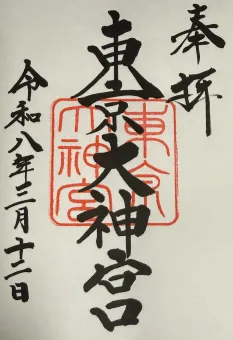 奉拝
東京大神宮
東京
大神宮
令和八年二月十二日